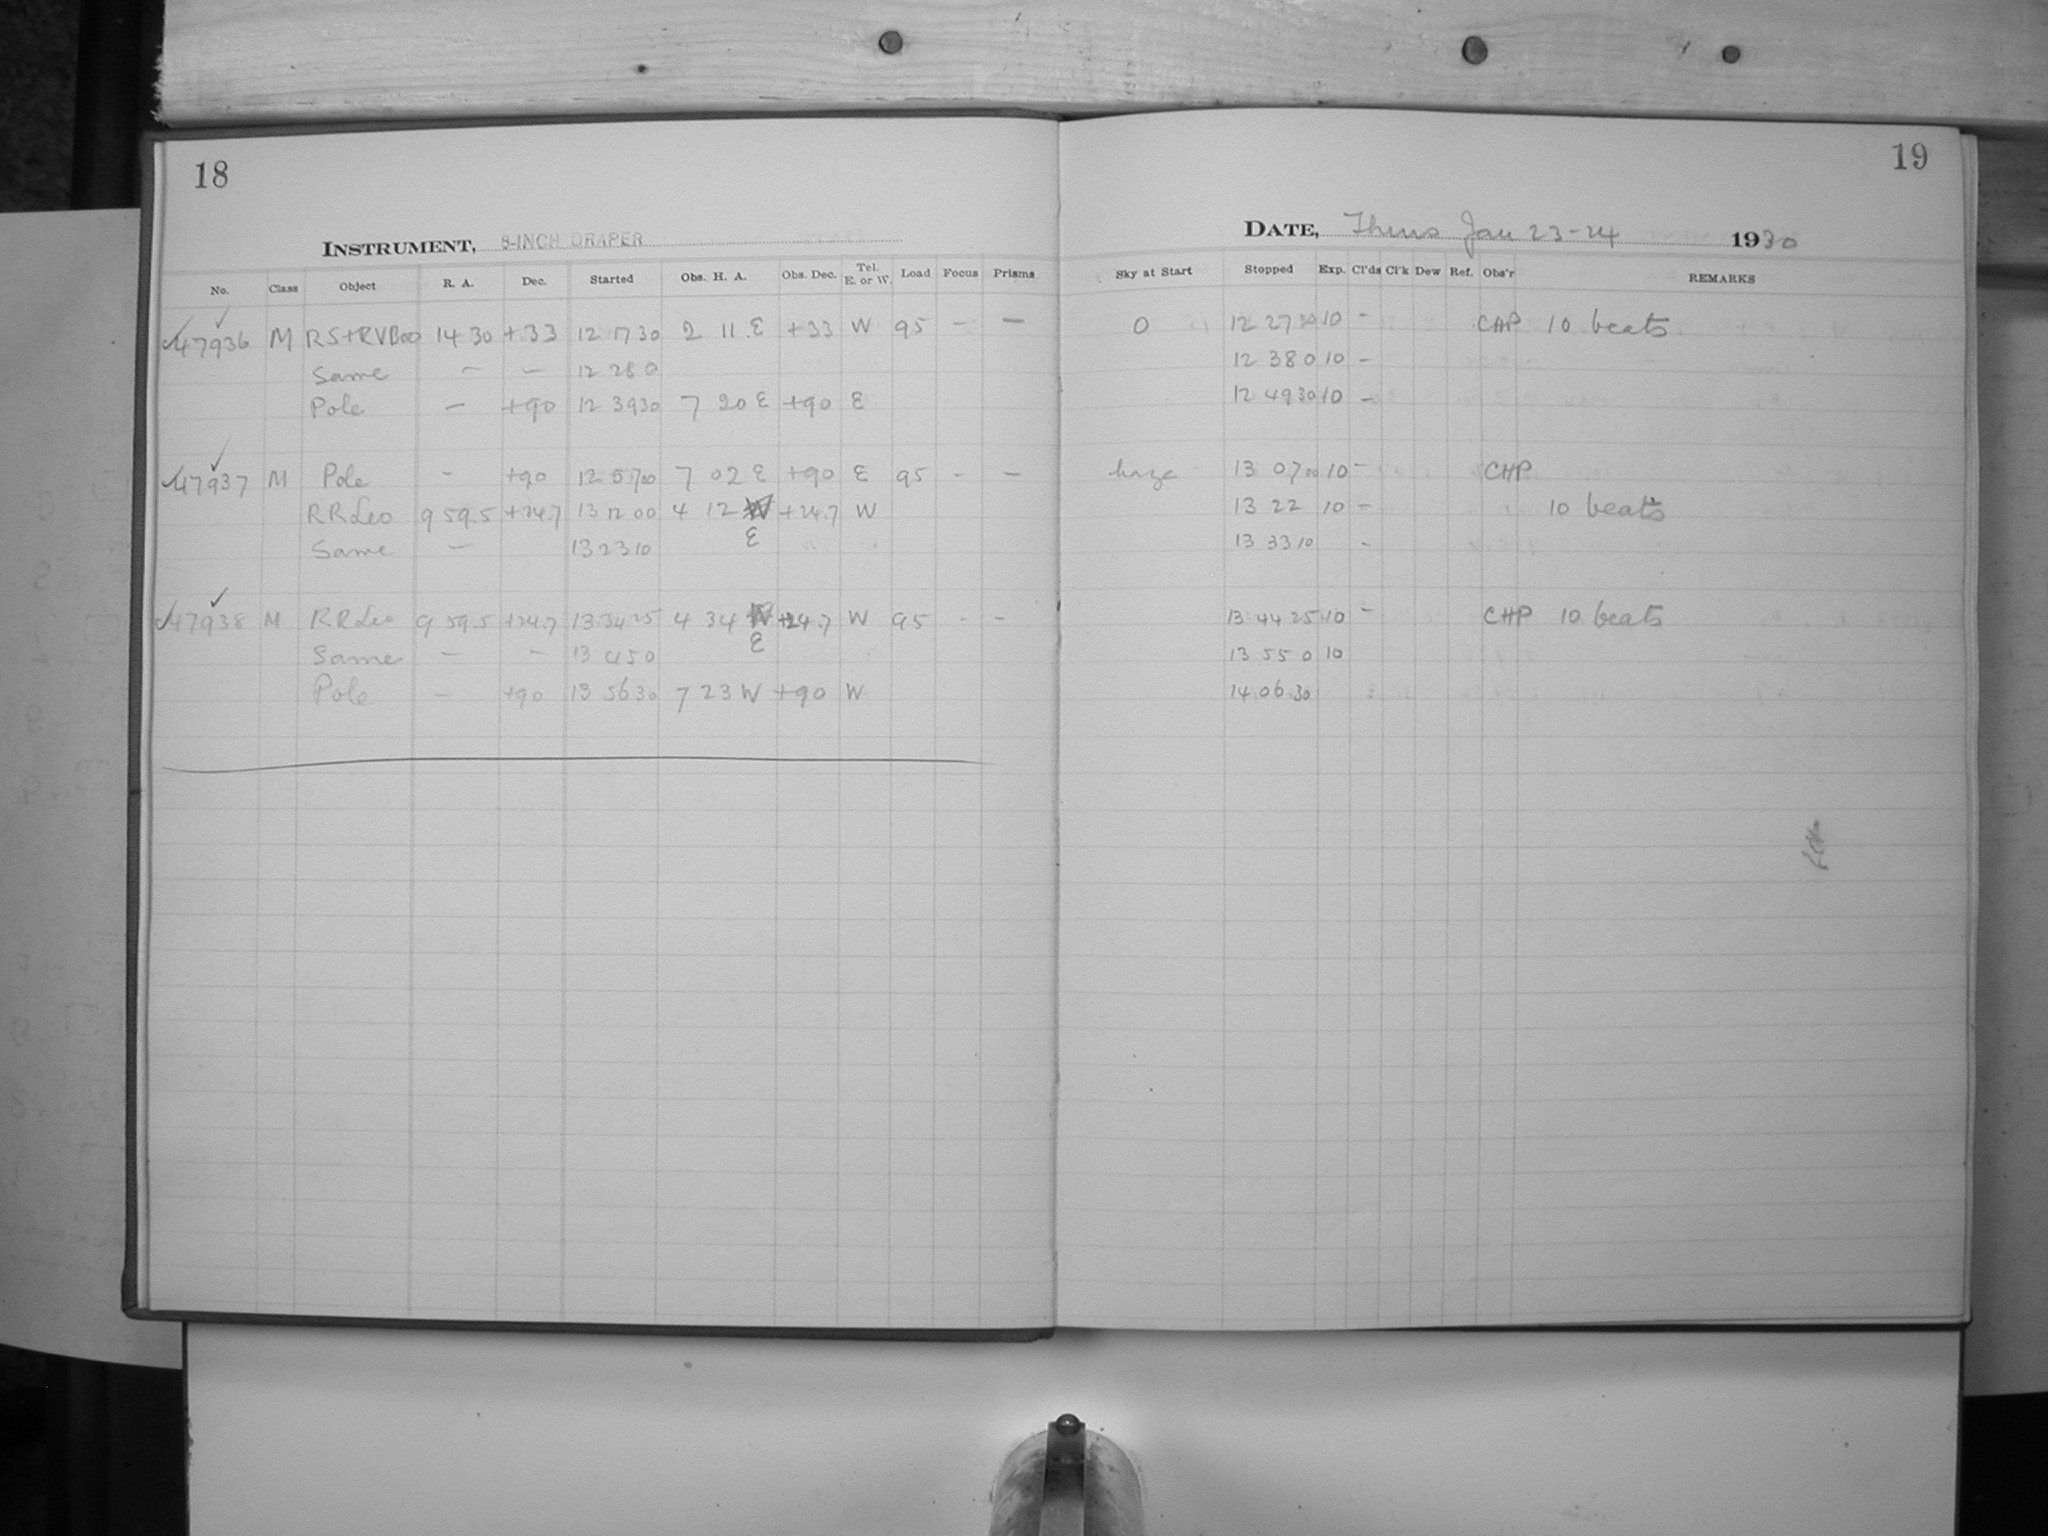 18
INSTRUMENT, 8-INCH DRAPER
No. Class Object R. A. Dec. Started Obs. H. A. Obs. Dec. Tel. E. or W. Load Focus Prisms
47936 M RS+RVBoo 14 30 +33 12 17 30 2 11 E +33 W 95 - -
Same - - 12 28 0
Pole - +90 12 39 30 7 20 E +90 E
47937 M Pole - +90 12 57 00 7 02 E +90 E 95 - -
RR Leo 9 59.5 +24.7 13 12 00 4 12 W +24.7 W
Same - 13 23 10 E
47938 M RR Leo 9 59.5 +24.7 13 34 25 4 34 W +24.7 W 95 - -
Same - - 13 45 0 E
Pole - +90 13 56 30 7 23 W +90 W
19
DATE, Thurs Jan 23-24 1930
Sky at Start Stopped Exp. Cl'ds Cl'k Dew Ref. Obs'r REMARKS
0 12 27 30 10 - CHP 10 beats
12 38 0 10 -
12 49 30 10 -
haze 13 07 00 10 - CHP
13 22 10 - 10 beats
13 33 10 -
13 44 25 10 - CHP 10 beats
13 55 0 10
14 06 30